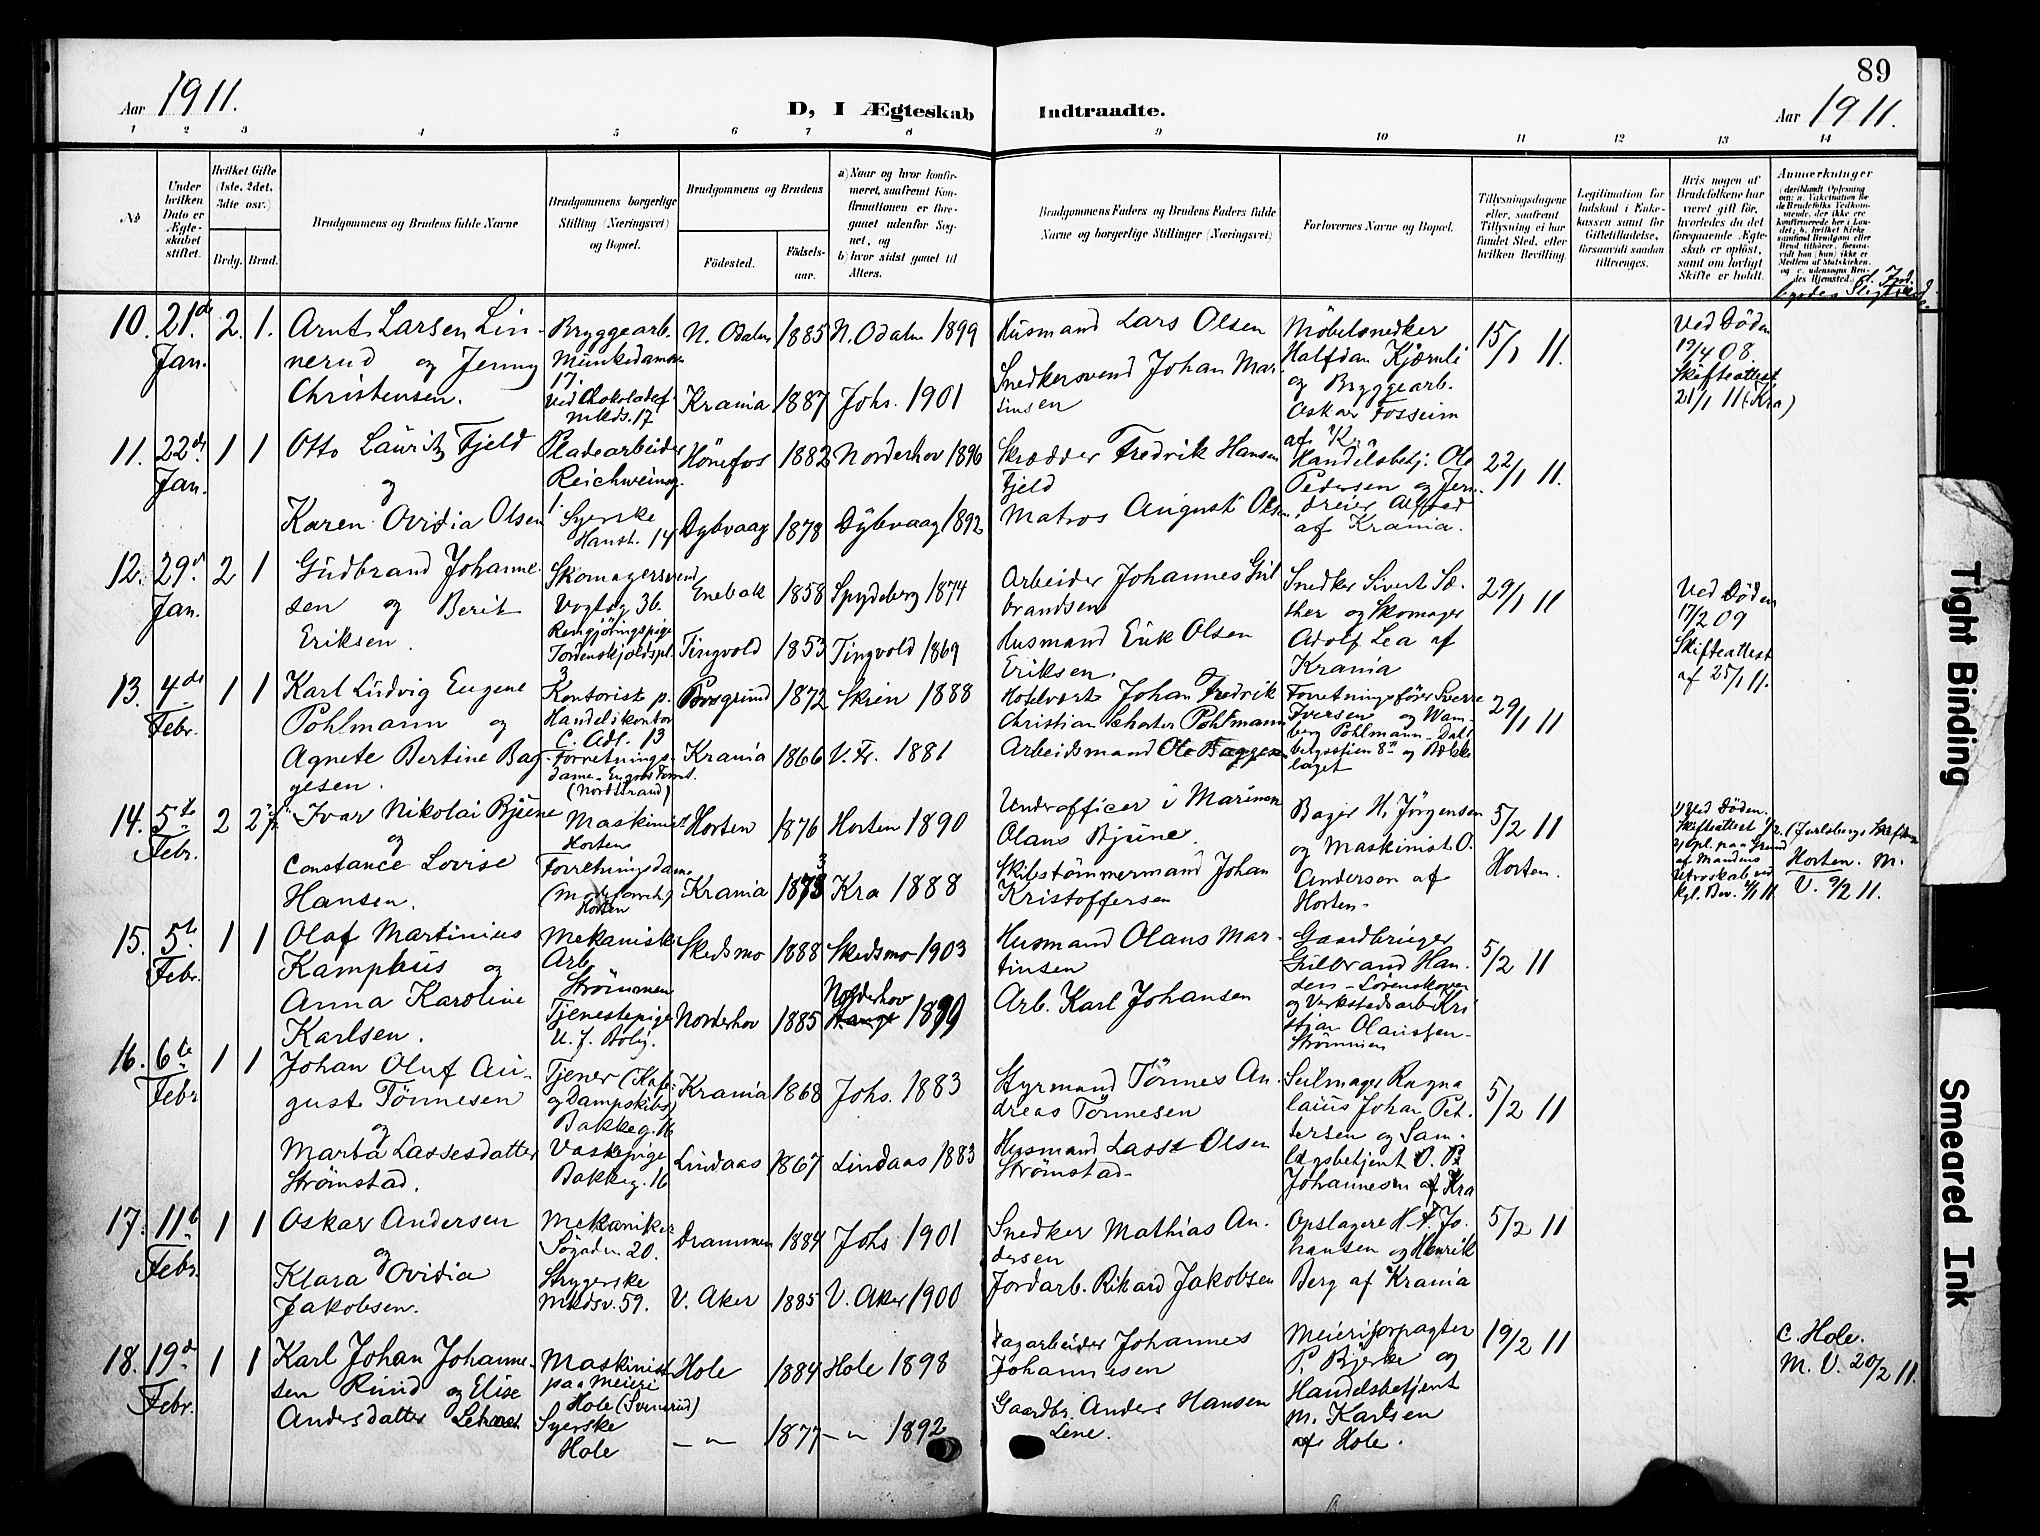 89
Aar 1911.
D, I Ægteskab
Indtraadte.
Aar 1911.
1 2 3 4 5 6 7 8 9 10 11 12 13 14
No
Under hvilken Dato er Ægteskabet stiftet.
Hvilket Gifte (1ste, 2det, 3die osv.)
Brdg. Brud.
Brudgommens og Brudens fulde Navne
Brudgommens borgerlige Stilling (Næringsvei) og Bopæl.
Brudgommens og Brudens
Födested.
Födselsaar.
a) Naar og hvor konfirmeret, saafremt Konfirmationen er foregaaet udenfor Sognet, og
b) hvor sidst gaaet til Alters.
Brudgommens Faders og Brudens Faders fulde Navne og borgerlige Stillinger (Næringsvei)
Forlovernes Navne og Bopæl.
Tillysningsdagene eller, saafremt Tillysning ei har fundet Sted, efter hvilken Bevilling.
Legitimation for Indskud i Enkekassen samt for Giftetilladelse, forsaavidt saadan tiltrænges.
Hvis nogen af Brudefolkene har været gift för, hvorledes da det foregaaende Ægteskab er oplöst, samt om lovligt Skifte er holdt.
Anmærkninger
10. 21de Jan. 2. 1.
Arnt Larsen Linnerud og Jenny Christensen.
Bryggearb.
17.
N. Odalen 1885 N. Odalen 1899
Krania 1887 Johs. 1901
Husmand Lars Olsen
Snedkersvend Johan Martinsen
Möbelsnedker Halfdan Kjærnli og Bryggearb. Oskar Fosseim af Kra
15/1 11.
Ved Döden 19/4 08. Skifteattest 21/1 11 (Kra)
11. 22de Jan. 1 1
Otto Lauritz Fjeld
og
Karen Ovidia Olsen
Pladearbeider
Syerske
Hanst. 14
Hönefos 1882 Norderhov 1896
Dybvaag 1878 Dybvaag 1892
Skrædder Fredrik Hansen Fjeld
Matros August Olsen
Handelsbetj. Ole Pedersen og Jern
af Krania.
22/1 11.
12. 29de Jan. 2 1
Gudbrand Johannesen og Berit Eriksen.
Skomagersvend
Vogtsg 36.
Rengjöringspige Tordenskjoldspl. 3
Enebak 1858 Spydeberg 1874
Tingvold 1853 Tingvold 1869
Arbeider Johannes Gulbrandsen
Husmand Erik Olsen Eriksen.
Snedker Sivert Sæther og Skomager Adolf Lea af Krania
29/1 11
Ved Döden 17/2 09
Skifteattest af 25/1 11.
13. 4de Febr. 1 1
Karl Ludvig Eugene Pohlmann og
Agnete Bertine Baggesen.
Kontorist p. Handelskontor C. Adl. 13
Forretningsdame
(Nordstrand)
Porsgrund 1872 Skien 1888
Krania 1866 V. Fr. 1881
Hotelvert Johan Fredrik Christian Pohlmann
Arbeidsmand Ole Baggesen
Forretningsförer Sverre Iversen og
29/1 11
14. 5te Febr. 2 2
Ivar Nikolai Bjune
og
Constance Lovise Hansen.
Maskinist
Horten
Forretningsdame
Horten
Horten 1876 Horten 1890
Krania 1873 Kra 1888
Underofficer i Marinen
Olaus Bjune.
Skibstömmermand Johan Kristoffersen
Bager H. Jörgensen og Maskinist O. Andersen af Horten.
5/2 11
Horten.
1) Ved Döden.
Horten. M.
V. 9/2 11.
15. 5te Febr. 1 1
Olaf Martinius Kamphus og
Anna Karoline Karlsen.
Mekanisk Arb.
Strömmen
Tjenestepige
U. f. Bolig.
Skedsmo 1888 Skedsmo 1903
Norderhov 1885 Norderhov 1899
Husmand Olaus Martinsen
Arb. Karl Johansen
Gaardbruger Gulbrand Hansen - Lörenskoven og Verkstedsarb Kristian Olaussen - Strömmen
5/2 11
16. 6te Febr 1 1
Johan Oluf August Tönnesen
og
Marta Lassesdatter Strömstad.
Tjener (Kafe og Dampskibs)
Bakkeg. 16
Vaskepige
Bakkeg. 16
Krania 1868 Johs. 1883
Lindaas 1867 Lindaas 1883
Styrmand Tönnes Andreas Tönnesen
Husmand Lasse Olsen Strömstad
Seilmager Ragnalaius Johan Pettersen og Samlagsbetjent O. P. Johannesen af Kra
5/2 11
17. 11te Febr. 1 1
Oskar Andersen
og
Klara Ovidia Jakobsen.
Mekaniker
Sögaden 20.
Strygerske
Mkdsv. 59.
Drammen 1884 Johs 1901
V. Aker 1885 V. Aker 1900
Snedker Mathias Andersen
Jordarb. Rikard Jakobsen
Opslagere H. A. Johansen og Henrik Berg af Krania
5/2 11
18. 19de Febr. 1 1
Karl Johan Johannesen Rund og Elise Andersdatter
Maskinist paa Meieri
Hole (Svenrud)
Syerske
Hole
Hole 1884 Hole 1898
— " — 1877 — " 1892
Dagarbeider Johannes Johannesen
Gaardbr. Anders Hansen Lene.
Meieriforpagter P. Bjerke og Handelsbetjent M. Karlsen af Hole.
19/2 11
C. Hole.
M. V. 20/2 11.
Tight Binding
Smeared Ink